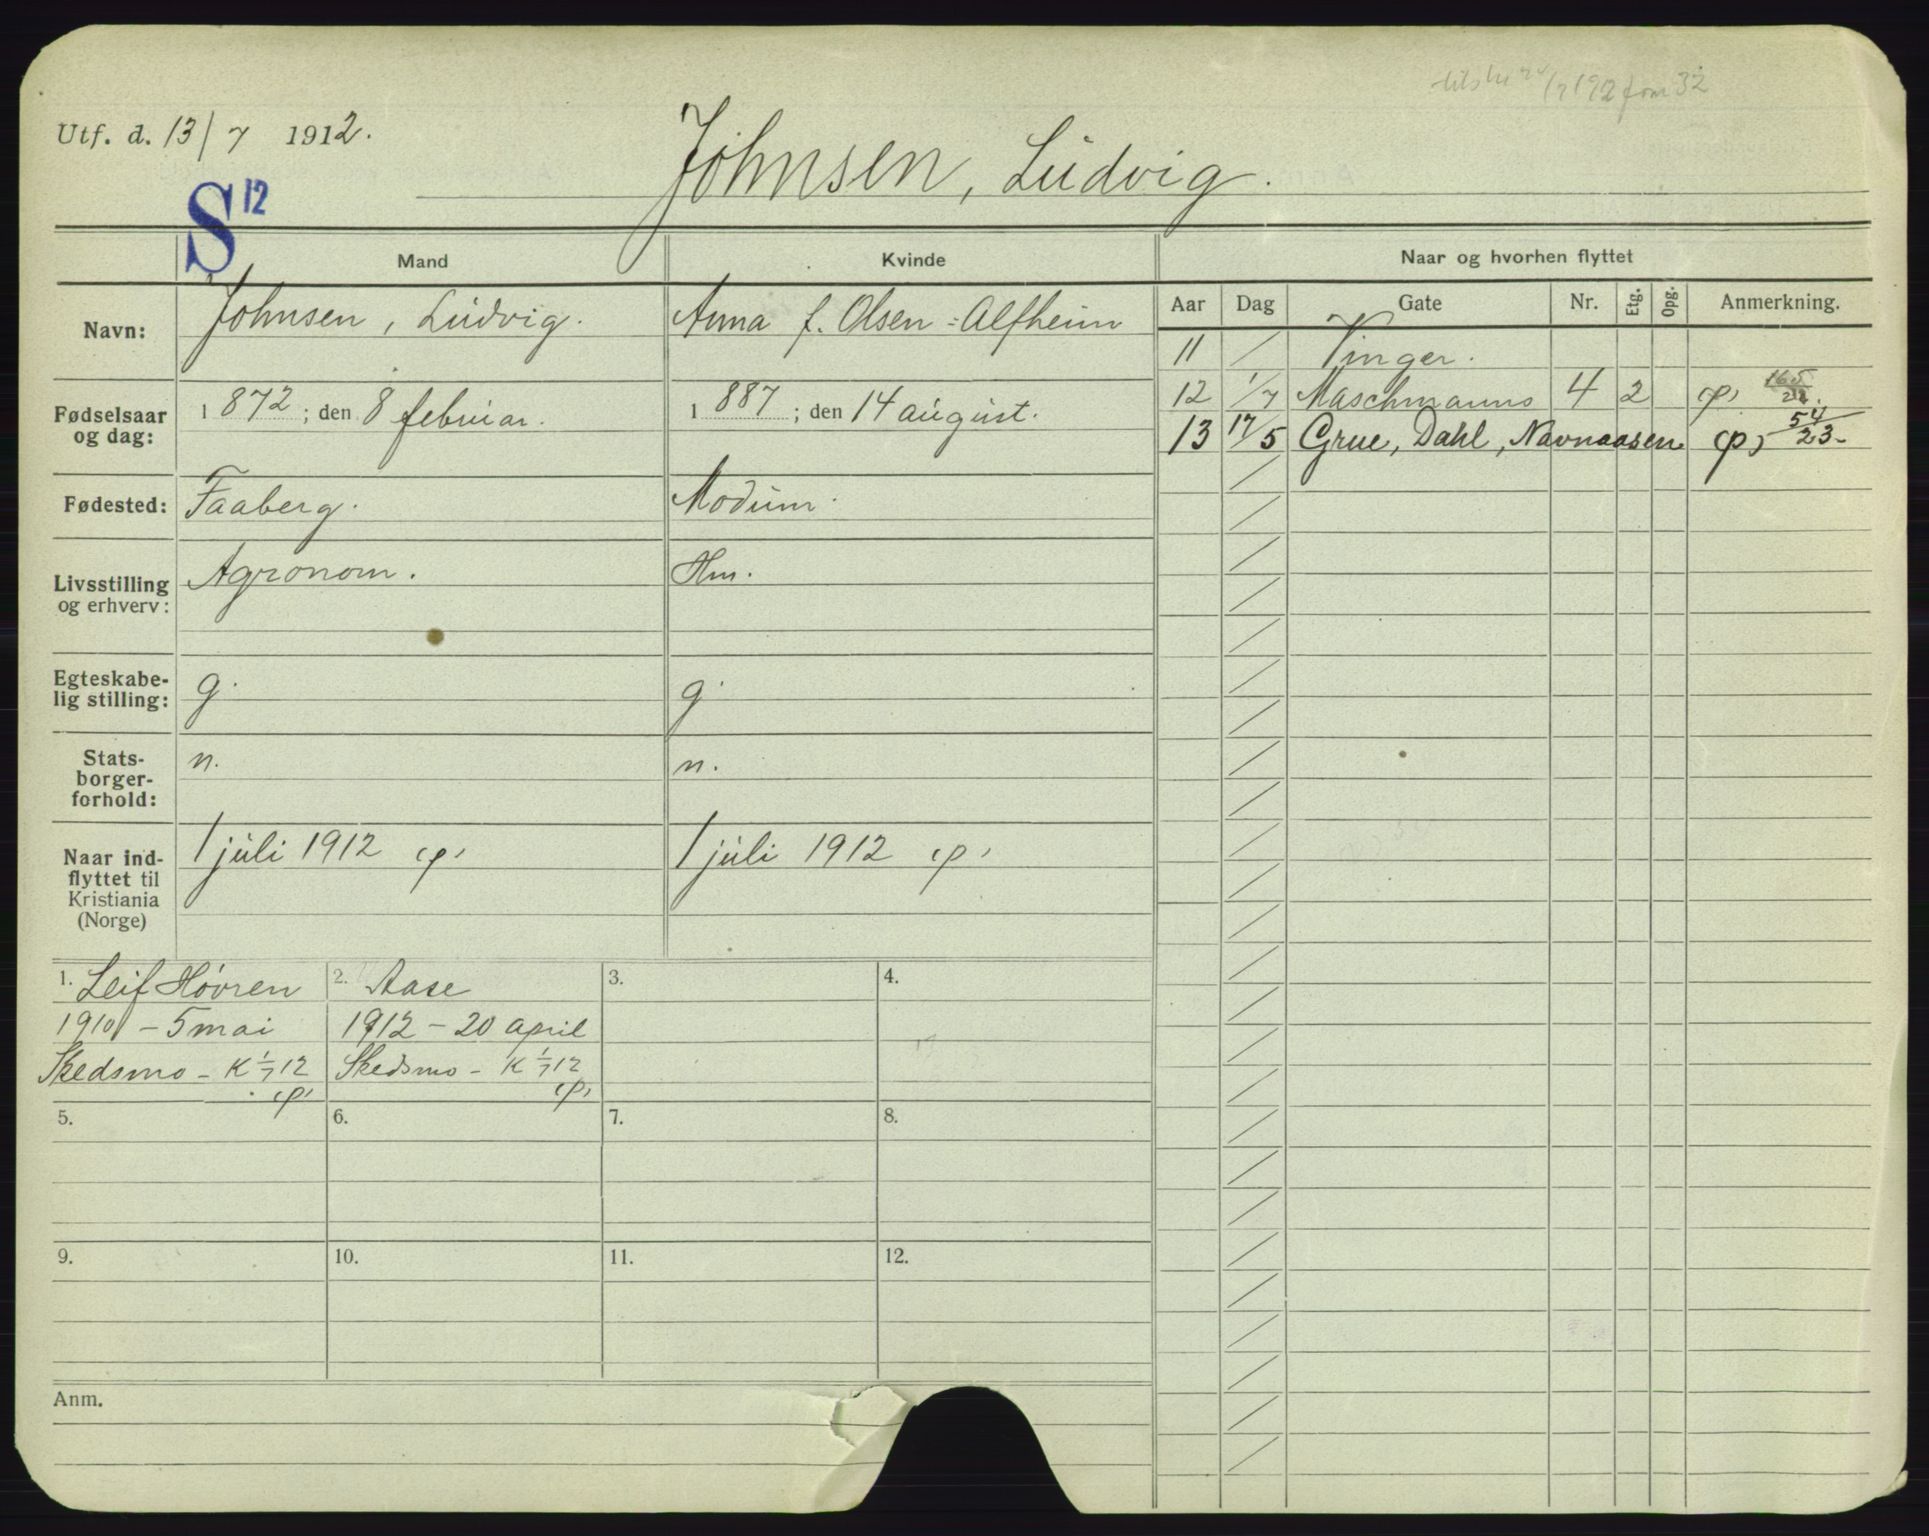 Utf. d. 13/7 1912.
S 12
Johnsen, Ludvig.
Mand
Kvinde
Naar og hvorhen flyttet
Navn:
Johnsen, Ludvig.
Anna f. Olsen-Alfheim
Fødselsaar og dag:
1872; den 8 februar.
1887; den 14 august.
Fødested:
Faaberg.
Modum.
Livsstilling og erhverv:
Agronom.
Hm.
Egteskabe-
lig stilling:
g.
g.
Stats-
borger-
forhold:
n.
n.
Naar ind-
flyttet til
Kristiania
(Norge)
1 juli 1912 (p)
1 juli 1912 (p)
Aar Dag Gate Nr. Etg. Opg. Anmerkning.
11 / Vinger.
12 1/7 Maschmanns 4 2 (p)
13 17/5 Grue, Dahl, Navnaasen (p) 54/23-
1. Leif Høvren
1910 - 5 mai
Skedsmo - K 1/7 12
(p)
2. Aase
1912 - 20 april
Skedsmo - K 1/7 12
(p)
3.
4.
5.
6.
7.
8.
9.
10.
11.
12.
Anm.